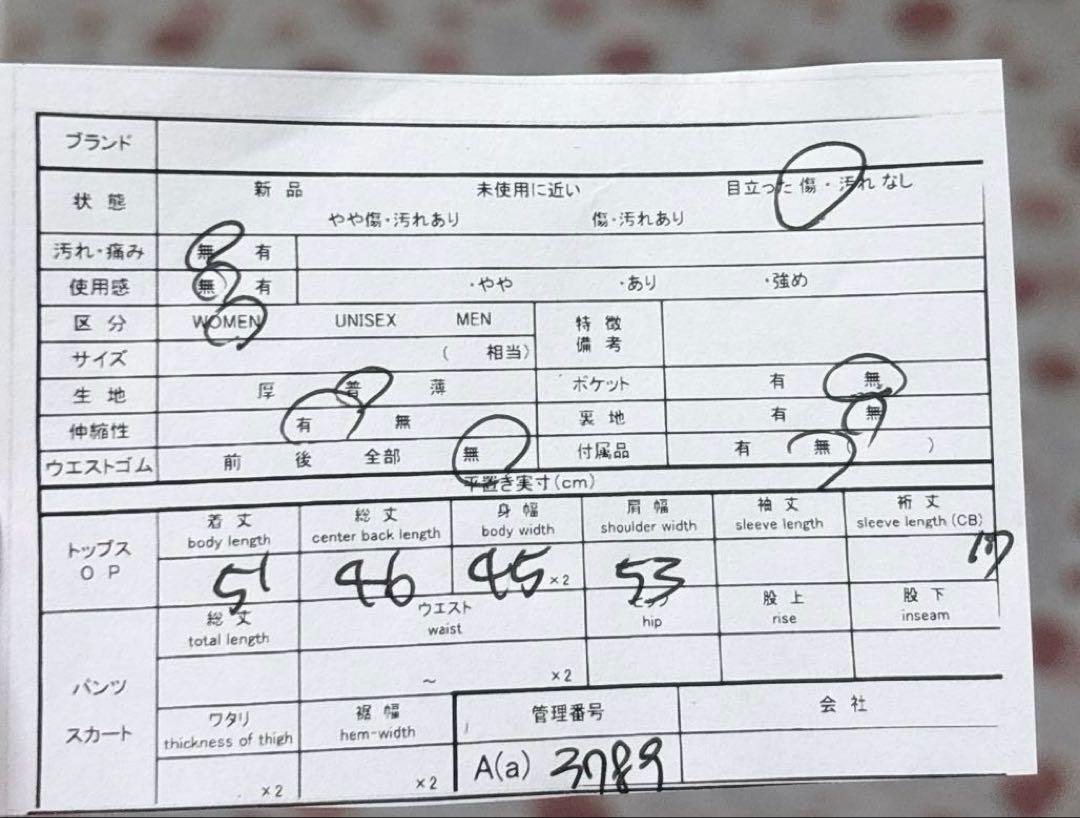 ブランド
状態 新品 未使用に近い 目立った 傷・汚れ なし
やや傷・汚れあり 傷・汚れあり
汚れ・痛み 無 有
使用感 無 有 ・やや ・あり ・強め
区分 WOMEN UNISEX MEN 特徴 備考
サイズ ( 相当)
生地 厚 普 薄 ポケット 有 無
伸縮性 有 無 裏地 有 無
ウエストゴム 前 後 全部 無 付属品 有 無 ( )
平置き実寸(cm)
トップス OP
着丈 総丈 身幅 肩幅 袖丈 裄丈
body length center back length body width shoulder width sleeve length sleeve length (CB)
51 46 45 ×2 53
パンツ スカート
総丈 ウエスト ヒップ 股上 股下
total length waist hip rise inseam
~ ×2
ワタリ 裾幅 管理番号 会社
thickness of thigh hem-width
×2 ×2 A(a) 3789